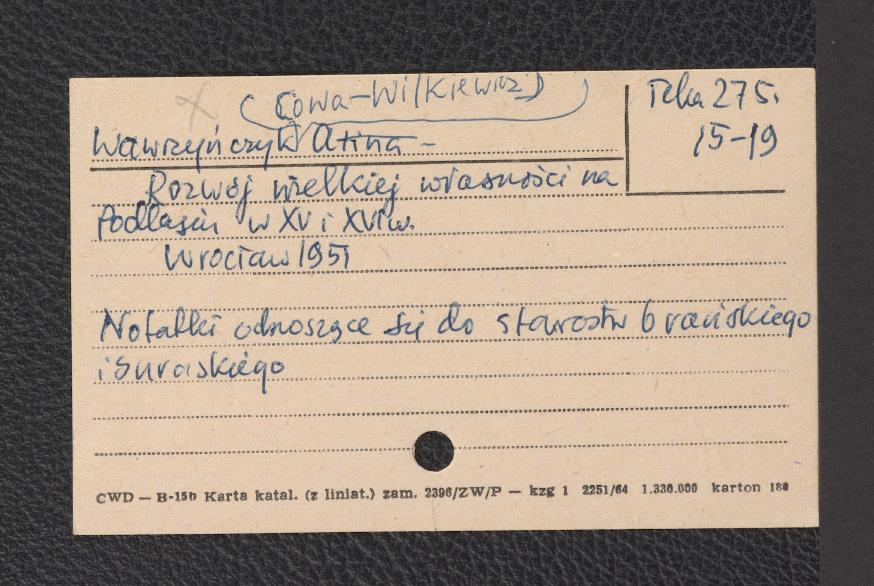 (Cowa-Wilkiewicz)
Teka 275.
15-19
Wawrzyńczyk Alina -
Rozwój wielkiej własności na
Podlasiu w XV i XVI w.
Wrocław 1951
Notatki odnoszące się do starostw brańskiego
i suraskiego
CWD — B-15b Karta katal. (z liniat.) zam. 2396/ZW/P — kzg 1 2251/64 1.330.000 karton 180